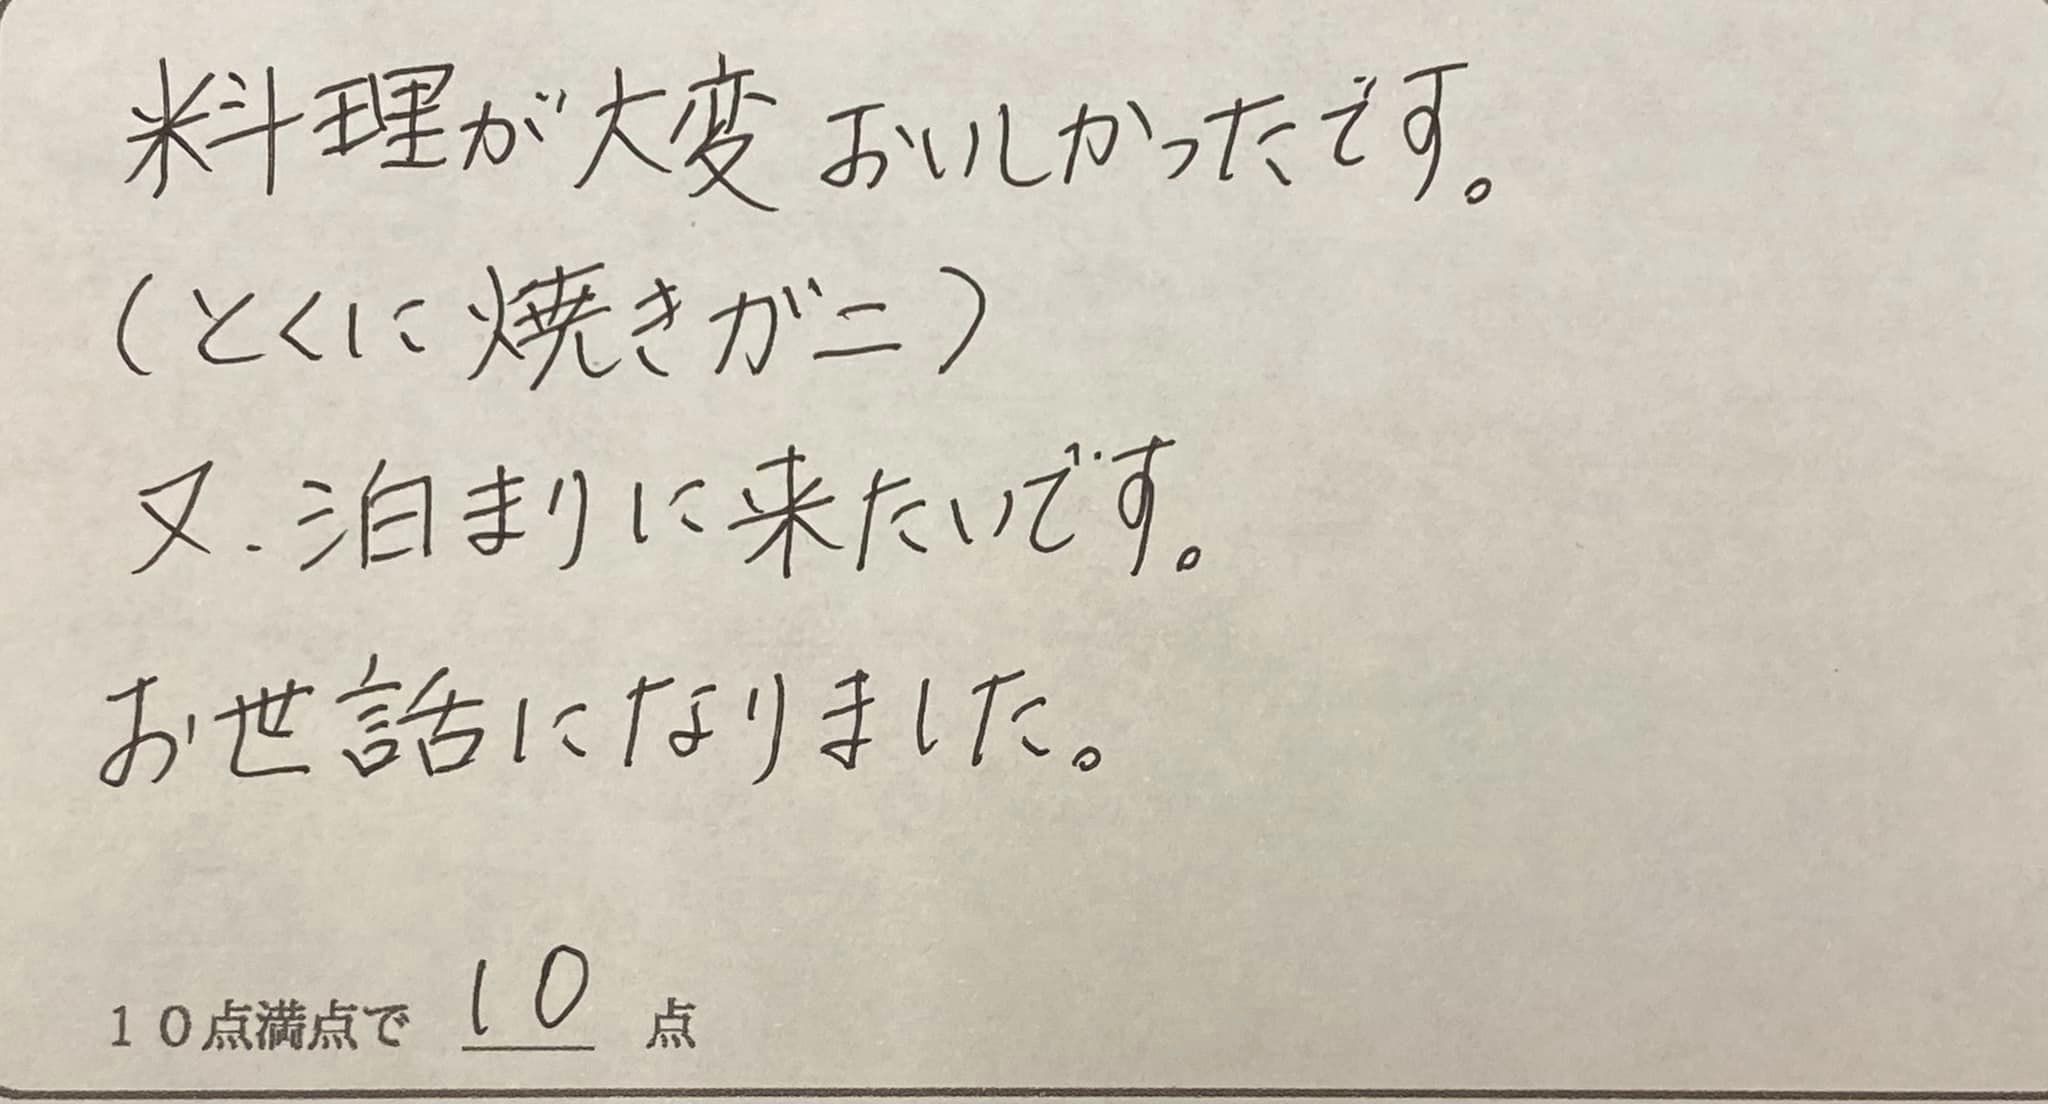 料理が大変おいしかったです。
（とくに焼きガニ）
又、泊まりに来たいです。
お世話になりました。
１０点満点で 10 点